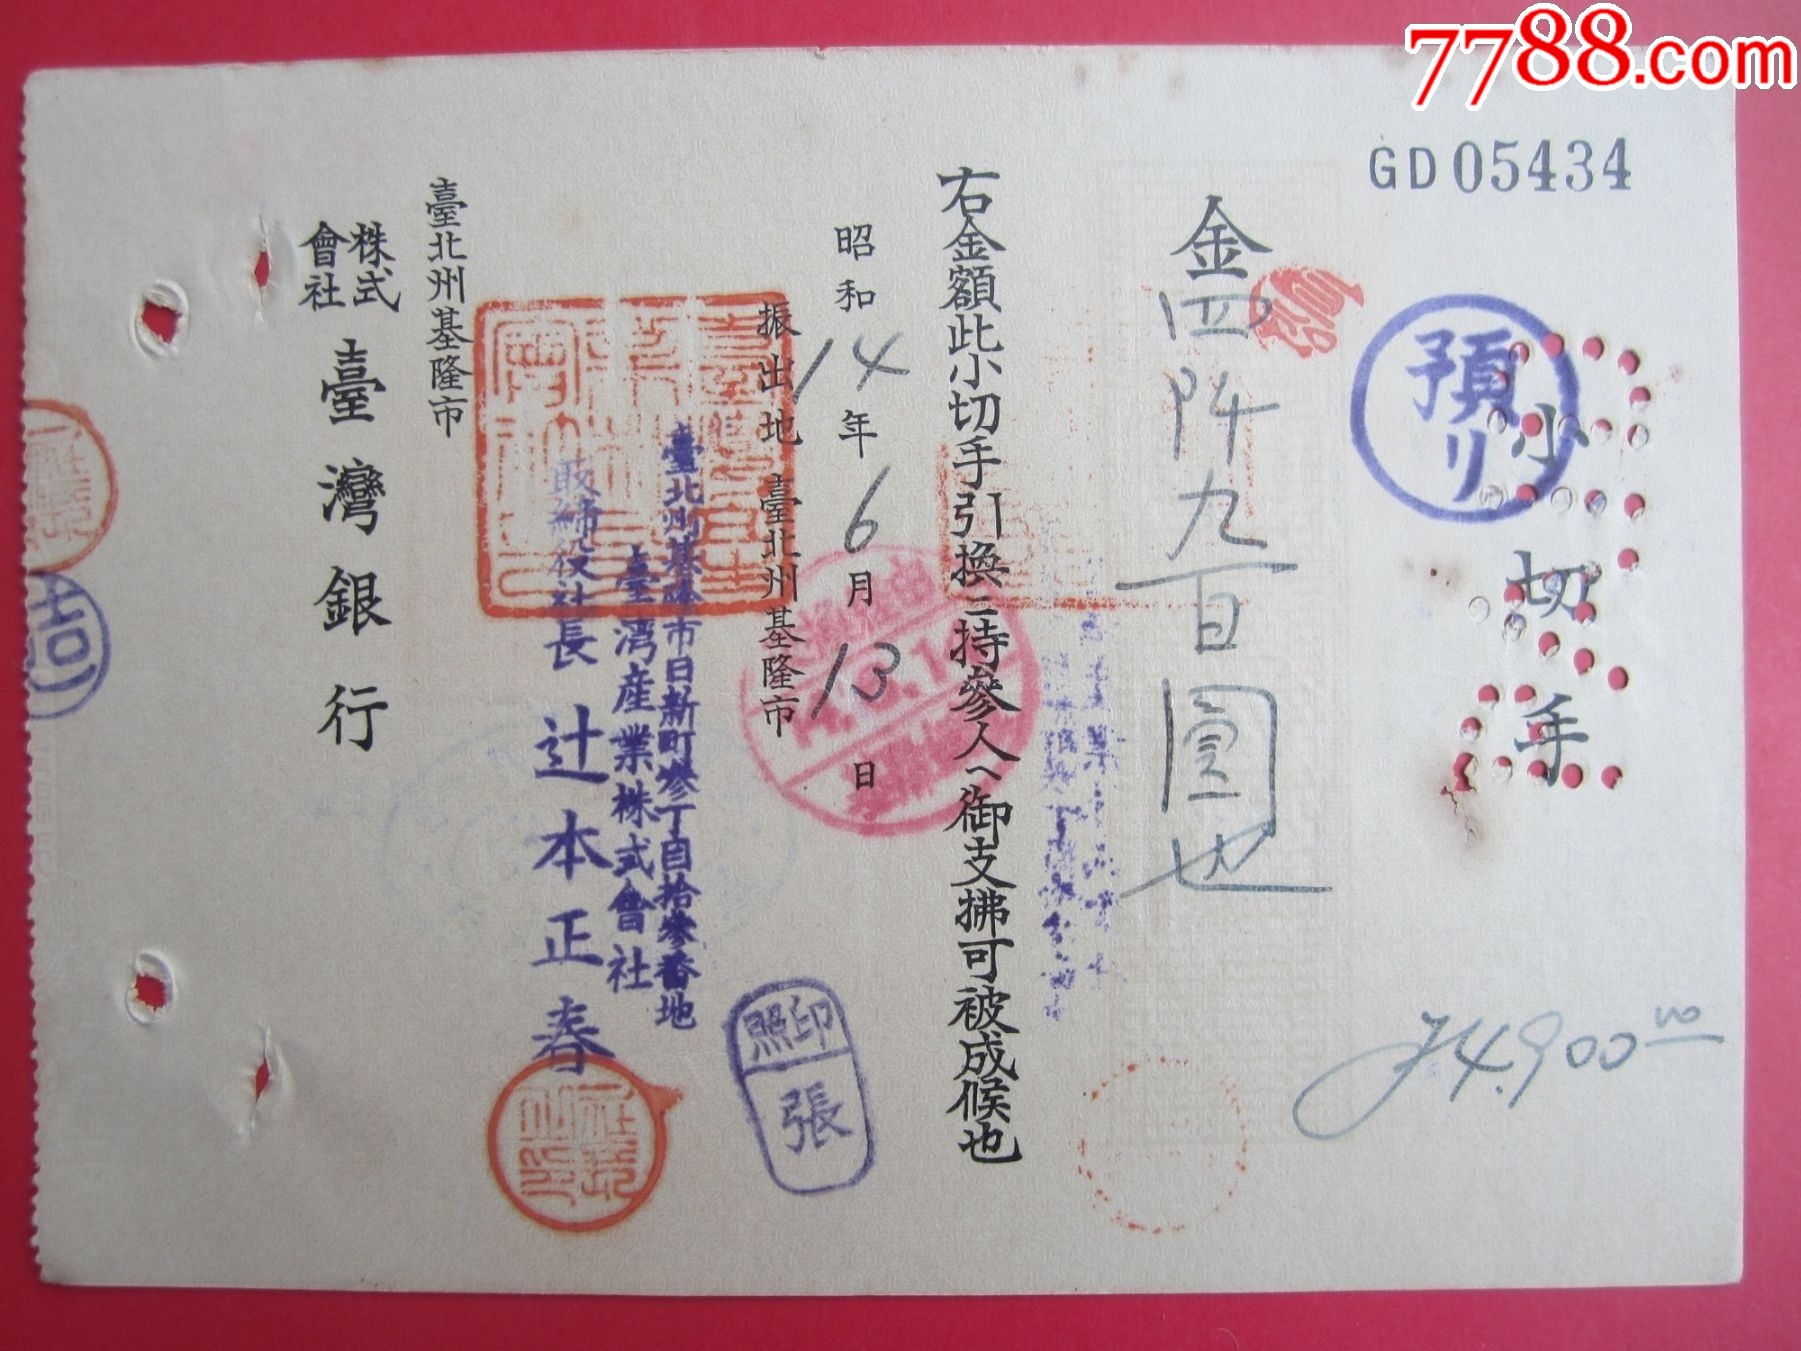 7788.com
GD05434
小切手
預リ
金四阡九百圓也
¥4,900.00
右金額此小切手引換ニ持參人ヘ御支拂可被成候也
昭和14年6月13日
振出地 臺北州基隆市
照印
張
臺北州基隆市日新町參丁目拾參番地
臺湾産業株式會社
取締役社長 辻本正春
臺北州基隆市
株式會社臺灣銀行